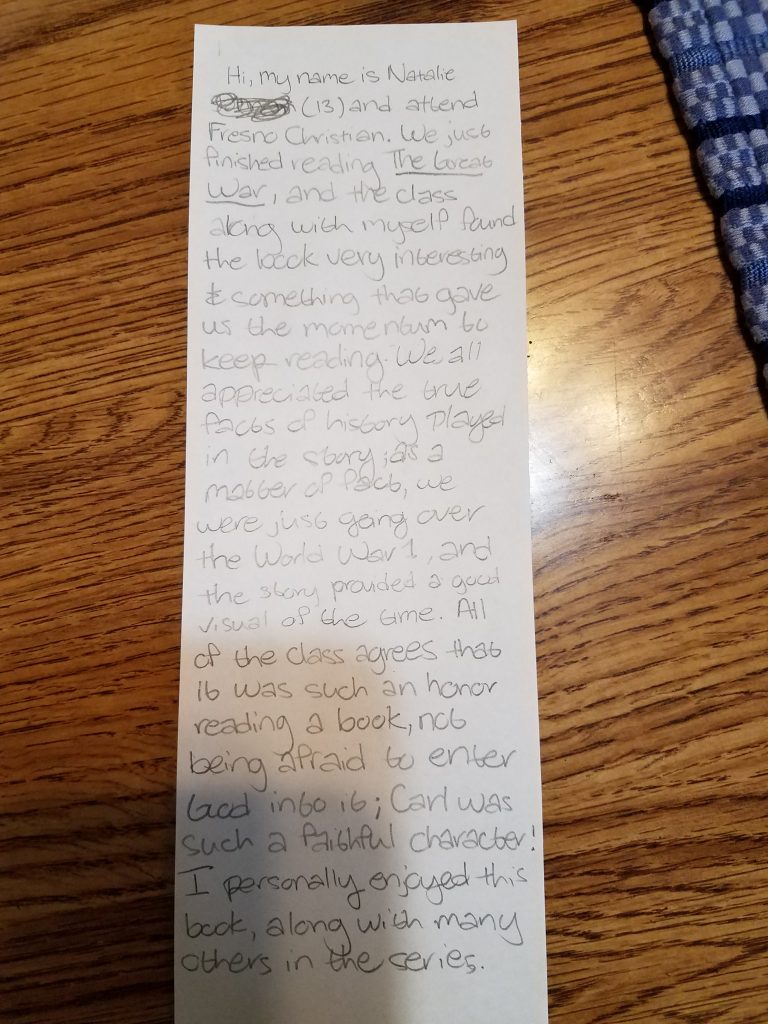 Hi, my name is Natalie
(13) and attend
Fresno Christian. We just
finished reading The Great
War, and the class
along with myself found
the book very interesting
& something that gave
us the momentum to
keep reading. We all
appreciated the true
facts of history played
in the story; as a
matter of fact, we
were just going over
the World War 1, and
the story provided a good
visual of the time. All
of the class agrees that
it was such an honor
reading a book, not
being afraid to enter
God into it; Carl was
such a faithful character!
I personally enjoyed this
book, along with many
others in the series.